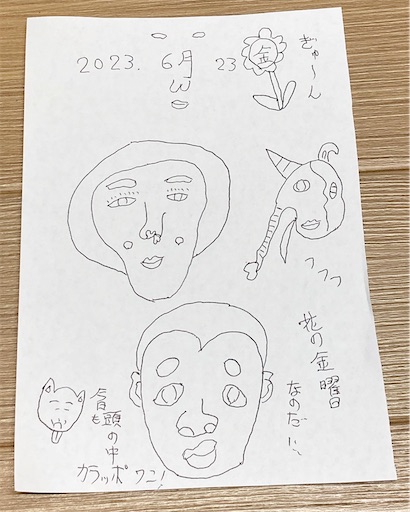 2023. 6月 23
金
ぎゅ〜ん
フフフ
花の金曜日
なのだ!!
今日も
頭の中
カラッポ ワニ!